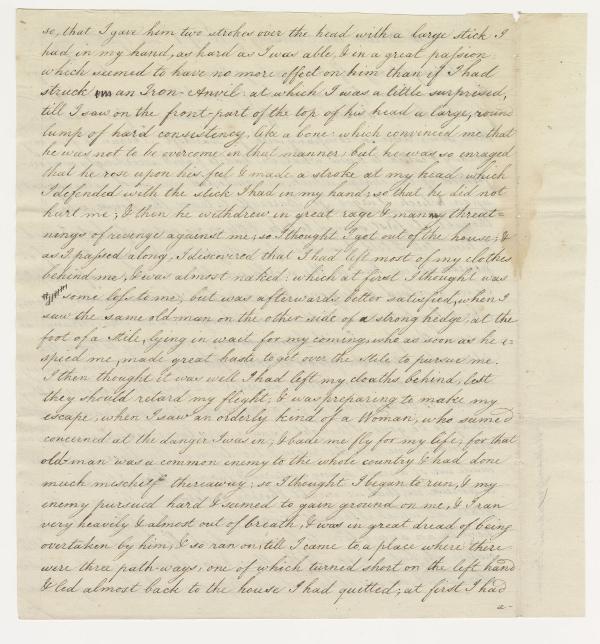 so, that I gave him two strokes over the head with a large stick I
had in my hand, as hard as I was able, & in a great passion
which seemed to have no more effect on him than if I had
struck an Iron-Anvil: at which I was a little surprised,
till I saw on the front-part of the top of his head a large, round
lump of hard consistency, like a bone: which convinced me that
he was not to be overcome in that manner; but he was so enraged
that he rose upon his feet & made a stroke at my head which
I defended with the stick I had in my hand; so that he did not
hurt me; & then he withdrew in great rage & many threat=
nings of revenge against me; so I thought I got out of the house; &
as I passed along, I discovered that I had left most of my clothes
behind me, & was almost naked: which at first I thought was
some loss to me; but was afterwards better satisfied, when I
saw the same old-man on the other side of a strong hedge, at the
foot of a Stile, lying in wait for my coming, who as soon as he e=
spied me, made great haste to get over the Stile to pursue me.
I then thought it was well I had left my cloaths behind, lest
they should retard my flight; & was preparing to make my
escape, when I saw an orderly kind of a Woman, who seemed
concerned at the danger I was in, & bade me fly for my life; for that
old-man was a common enemy to the whole country & had done
much mischief thereaway; so I thought I began to run, & my
enemy pursued hard & seemed to gain ground on me, & I ran
very heavily & almost out of breath, & was in great dread of being
overtaken by him; & so ran on, till I came to a place where there
were three path-ways; one of which turned short on the left hand
& led almost back to the house I had quitted; at first I had
a-